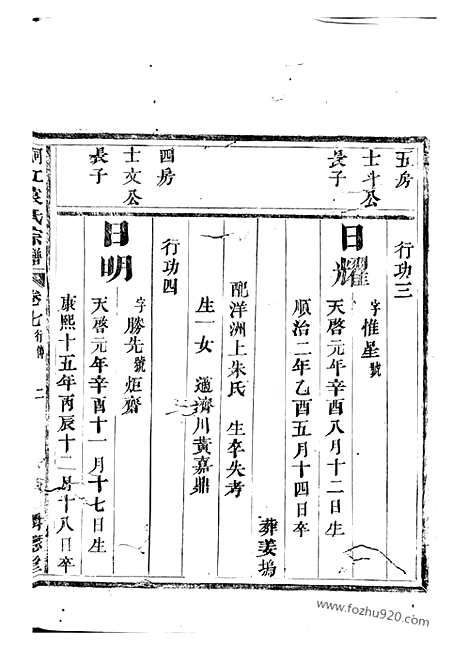 五房
士斗公
長子
行功三
日耀
字惟星號
天啓元年辛酉八月十二日生
順治二年乙酉五月十四日卒
葬姜塢
配洋洲上朱氏 生卒失考
生一女 適濟川黃嘉鼎
四房
士文公
長子
行功四
日明
字勝先號炬齋
天啓元年辛酉十一月十七日生
康熙十五年丙辰十二月十八日卒
江袁氏宗譜
卷七 行傳 二
www.fozhu920.com